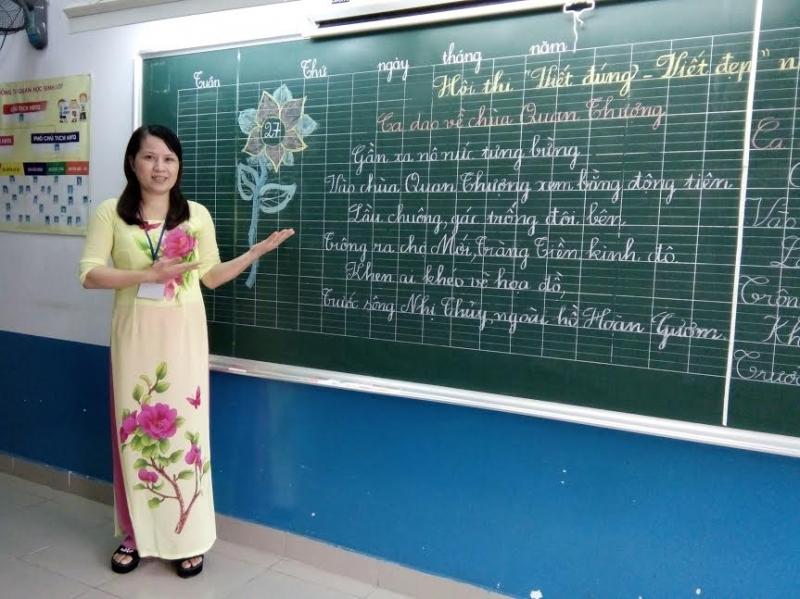 QUẢN HỌC SINH LỚP
CHỦ TỊCH HĐTQ
PHÓ CHỦ TỊCH HĐTQ
Tuần Thứ ngày tháng năm
Hội thi "Viết đúng - Viết đẹp" n
27
Ca dao về chùa Quan Thượng
Gần xa nô nức tưng bừng,
Vào chùa Quan Thượng xem bằng động tiên.
Lầu chuông, gác trống đôi bên,
Trông ra chợ Mới, Tràng Tiền kinh đô.
Khen ai khéo vẽ họa đồ,
Trước sông Nhị Thủy, ngoài hồ Hoàn Gươm.
Ca
Trôn
Kh
Trướ